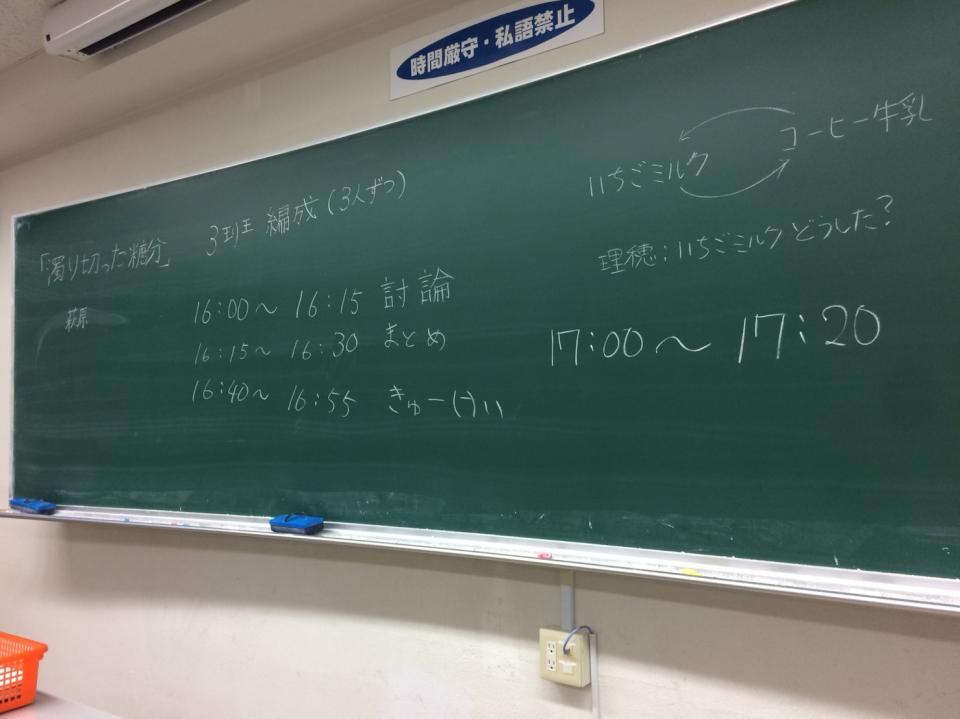 時間厳守・私語禁止
「濁り切った糖分」
萩原
3班 編成(3人ずつ)
16:00～ 16:15 討論
16:15～ 16:30 まとめ
16:40～ 16:55 きゅーけい
コーヒー牛乳
いちごミルク
理穂:いちごミルクどうした?
17:00～ 17:20